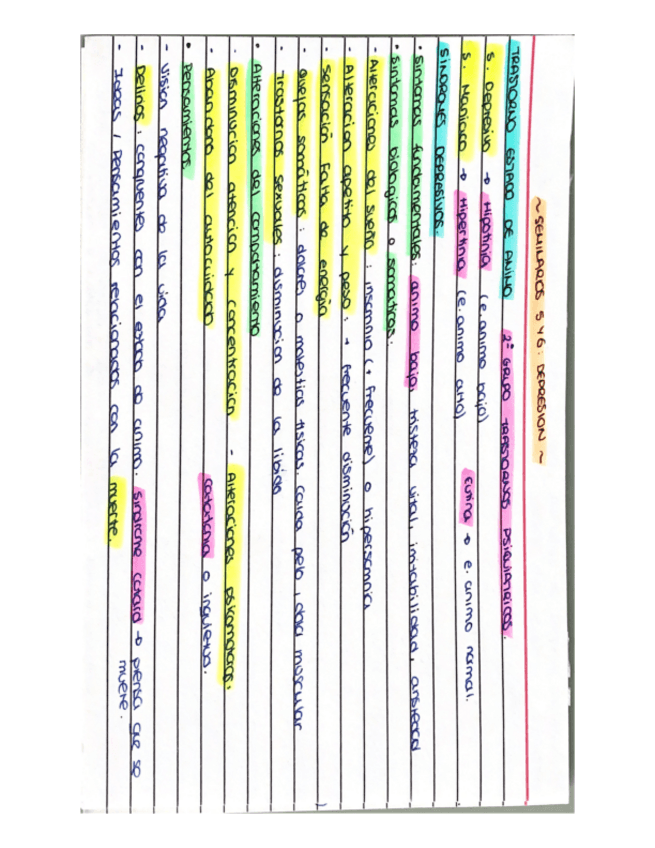 ~ SEMINARIOS 5 Y 6: DEPRESION ~
TRASTORNO ESTADO DE ANIMO 2º GRUPO TRASTORNOS PSIQUIATRICOS.
S. Depresivo → Hipotimia (e. animo bajo)
S. Maniaco → Hipertimia (e. animo alto) Eutimia → e. animo normal.
SINDROMES DEPRESIVOS.
• Sintomas fundamentales: animo bajo, tristeza vital, irritabilidad, ansiedad
• Sintomas biologicos o somaticos.
- Alteraciones del sueño: insomnio (+ frecuente) o hipersomnia
- Alteracion apetito y peso: + frecuente disminución
- Sensación Falta de energia
- Quejas somáticas: dolores o molestias fisicas. Caida pelo, dolor muscular
- Trastornos sexuales: disminucion de la libido
• Alteraciones del comportamiento
- Disminucion atencion y concentracion - Alteraciones psikomotoras:
- Abandono del autocuidado catatonia o inquietud.
• Pensamientos
- Vision negativa de la vida
- Delirios: congruentes con el estado de animo. Sindrome cotard → piensa que se muere.
- Ideas / Pensamientos relacionados con la muerte.